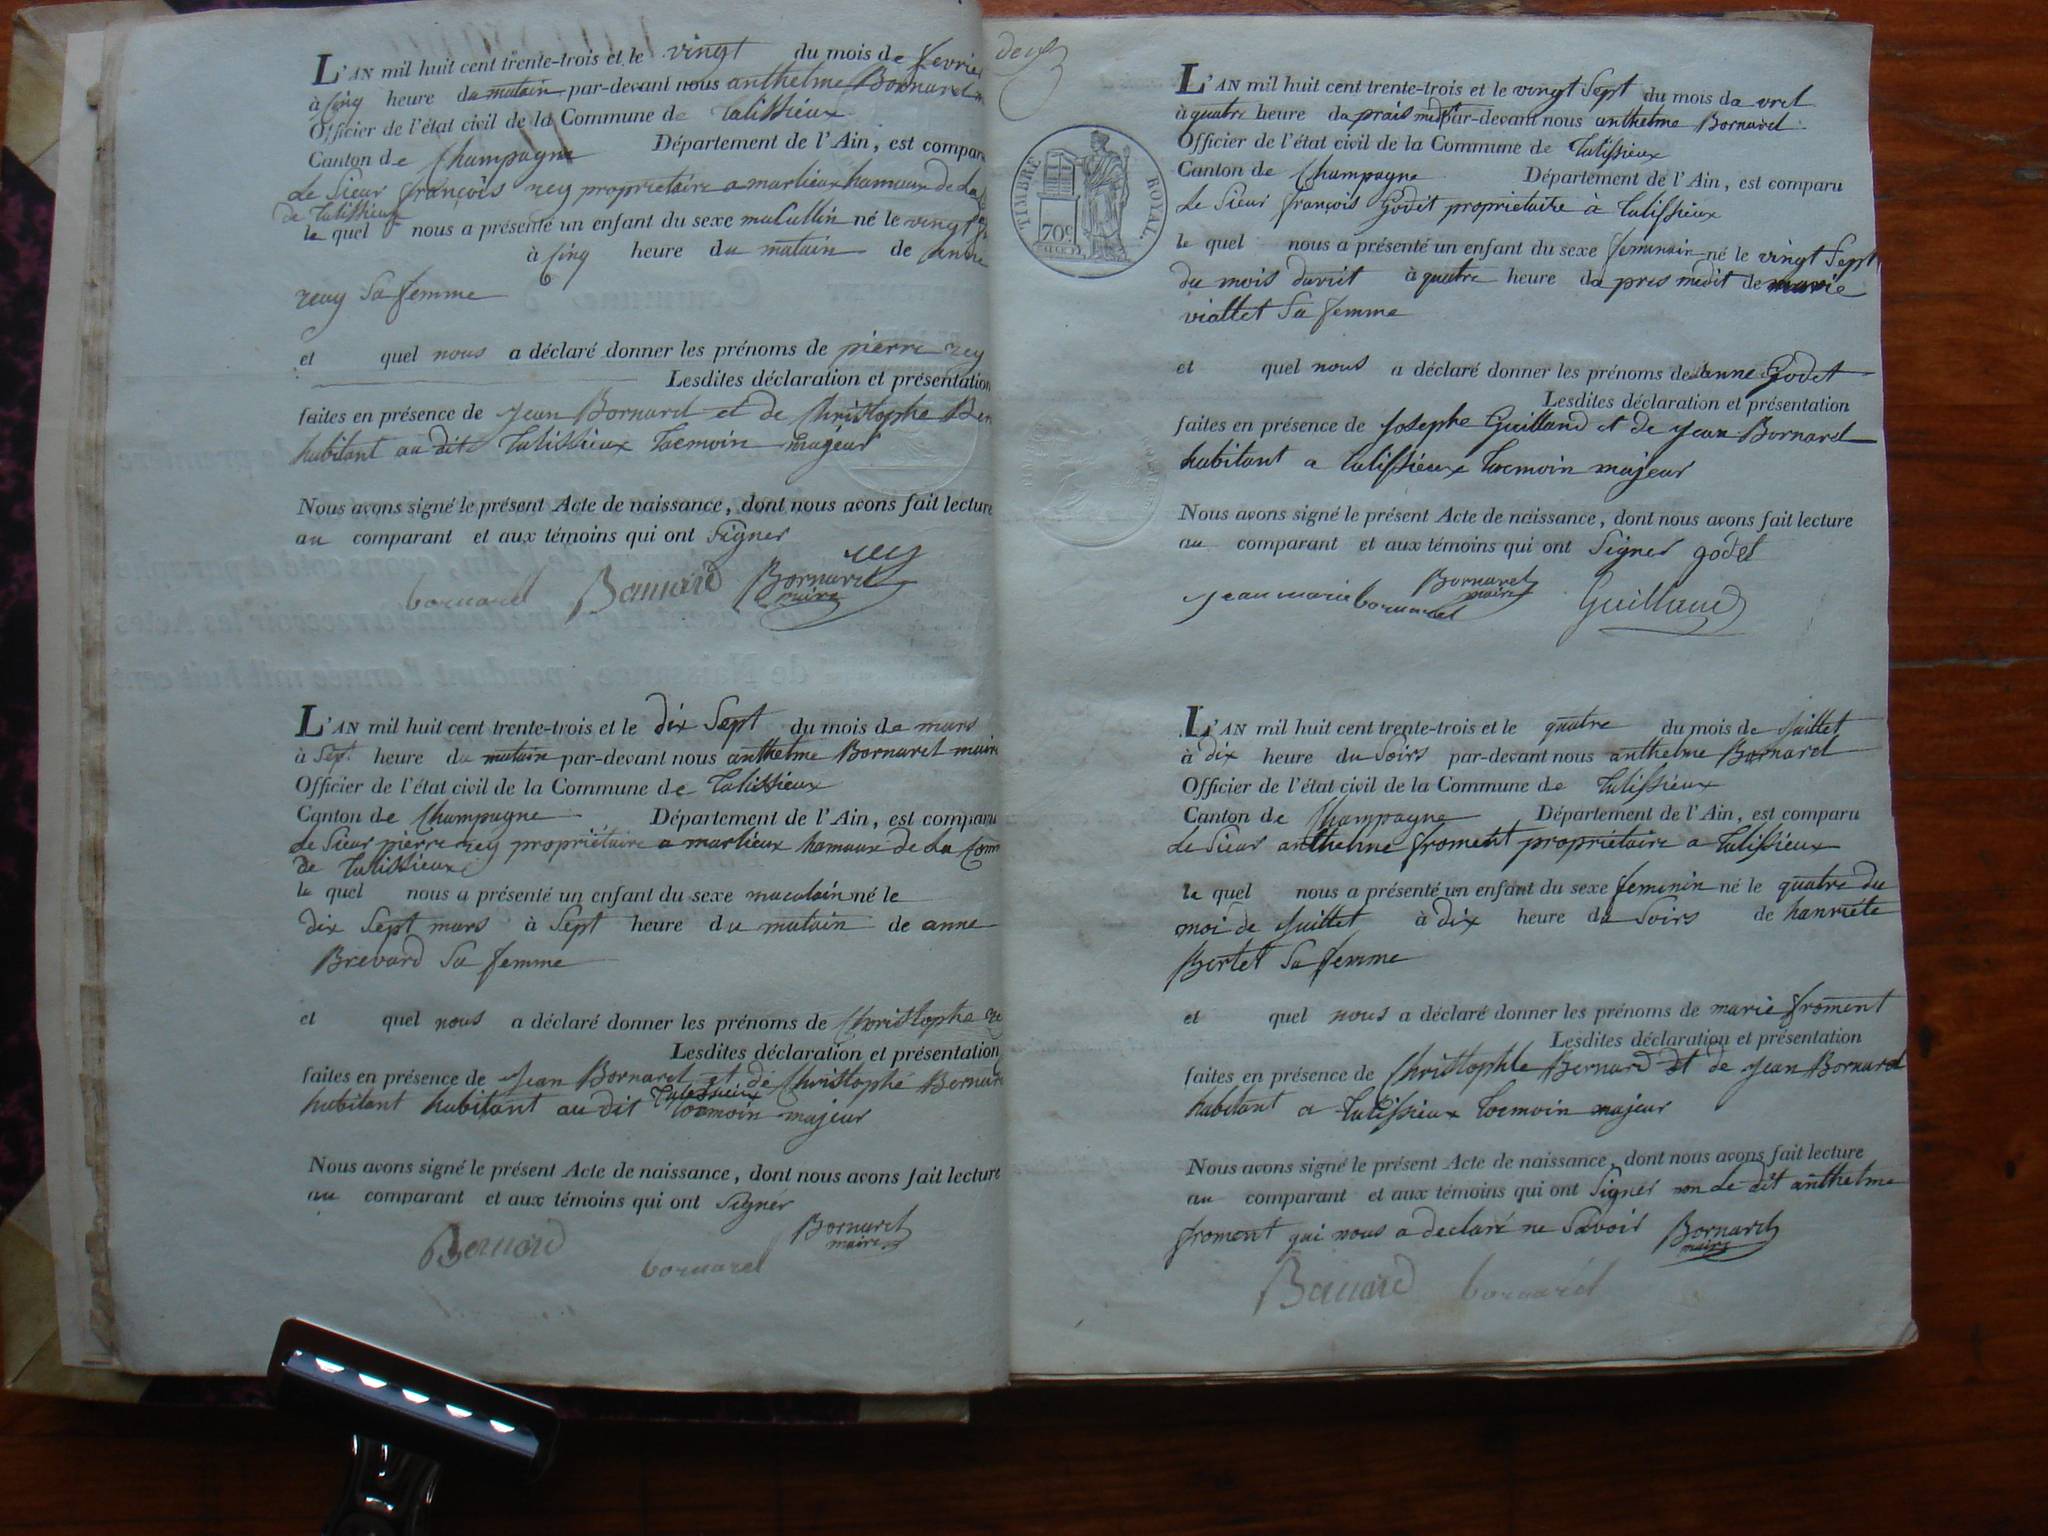 L'AN mil huit cent trente-trois et le vingt du mois de fevrier
à Cinq heure du matain par-devant nous anthelme Bornarel
Officier de l'état civil de la Commune de talissieux
Canton de Champagne Département de l'Ain, est comparu
Le Sieur françois rey proprietaire a marlieux hamaux de La
de talissieux
le quel nous a présenté un enfant du sexe né le vingt
à Cinq heure du matain de anne
rey Sa femme
et quel nous a déclaré donner les prénoms de pierre rey
Lesdites déclaration et présentation
faites en présence de jean Bornarel et de Christophe Ber
habitant au dit talissieux toemoin majeur
Nous avons signé le présent Acte de naissance, dont nous avons fait lecture
au comparant et aux témoins qui ont Signer
rey
bornarel Bernard Bornarel
maire
L'AN mil huit cent trente-trois et le dix Sept du mois de mars
à Sept heure du matain par-devant nous anthelme Bornarel maire
Officier de l'état civil de la Commune de talissieux
Canton de Champagne Département de l'Ain, est comparu
Le Sieur pierre rey propriétaire a marlieux hamaux de La Com
de talissieux
le quel nous a présenté un enfant du sexe masculain né le
dix Sept mars à Sept heure du matain de anne
Brevard Sa femme
et quel nous a déclaré donner les prénoms de Christophe
Lesdites déclaration et présentation
faites en présence de jean Bornarel et de Christophe Bernard
talissieux
habitant habitant au dit toemoin majeur
Nous avons signé le présent Acte de naissance, dont nous avons fait lecture
au comparant et aux témoins qui ont Signer
Bornarel
maire
Bernard bornarel
deux
TIMBRE ROYAL
70c
L'AN mil huit cent trente-trois et le vingt Sept du mois da vril
à quatre heure da prais midit par-devant nous anthelme Bornarel
Officier de l'état civil de la Commune de talissieux
Canton de Champagne Département de l'Ain, est comparu
Le Sieur françois Godet proprietaire à talissieux
le quel nous a présenté un enfant du sexe feminain né le vingt Sept
du mois davril à quatre heure da pres midit de marie
viallet Sa femme
et quel nous a déclaré donner les prénoms de anne Godet
Lesdites déclaration et présentation
faites en présence de Josephe Guilland et de jean Bornarel
habitant a talissieux toemoin majeur
Nous avons signé le présent Acte de naissance, dont nous avons fait lecture
au comparant et aux témoins qui ont Signer godet
Bornarel
maire
jean marie bornarel Guilland
L'AN mil huit cent trente-trois et le quatre du mois de Juillet
à dix heure du Soirs par-devant nous anthelme Bornarel
Officier de l'état civil de la Commune de talissieux
Canton de Champagne Département de l'Ain, est comparu
Le Sieur anthelme froment propriétaire a talissieux
le quel nous a présenté un enfant du sexe feminin né le quatre du
moi de Juillet à dix heure du Soirs de hanriéte
Bertet Sa femme
et quel nous a déclaré donner les prénoms de marie froment
Lesdites déclaration et présentation
faites en présence de Christophe Bernard et de jean Bornarel
habitant a talissieux toemoin majeur
Nous avons signé le présent Acte de naissance, dont nous avons fait lecture
au comparant et aux témoins qui ont Signer non Le dit anthelme
froment qui nous a declaré ne Savoir Bornarel
maire
Bernard bornarel